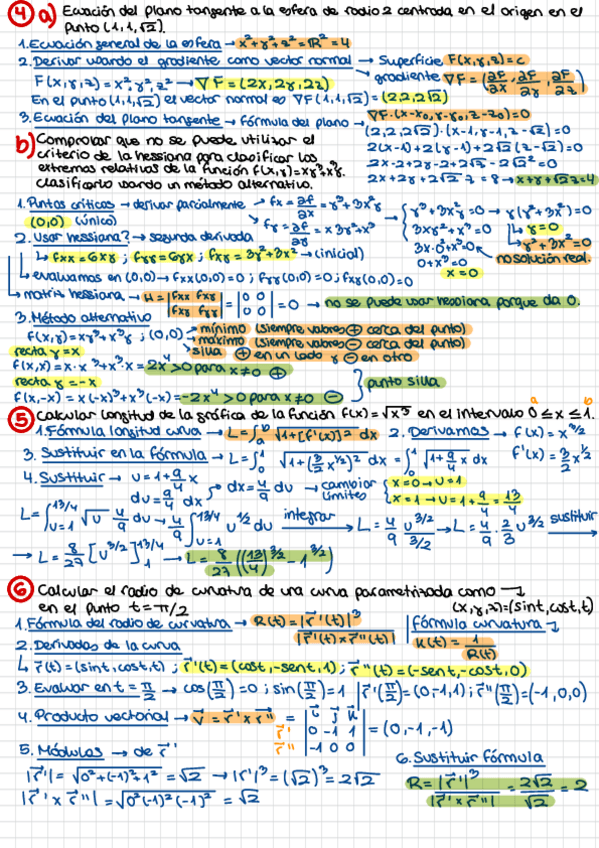 4 a) Ecuación del plano tangente a la esfera de radio 2 centrada en el origen en el
punto (1,1,√2).
1. Ecuación general de la esfera → x²+y²+z²=R²=4
2. Derivar usando el gradiente como vector normal → Superficie F(x,y,z)=c
F(x,y,z)=x²,y²,z² → ∇F=(2x,2y,2z) gradiente ∇F=(∂F/∂x, ∂F/∂y, ∂F/∂z)
En el punto (1,1,√2) el vector normal es ∇F(1,1,√2)=(2,2,2√2)
3. Ecuación del plano tangente → fórmula del plano → ∇F·(x-x₀,y-y₀,z-z₀)=0
(2,2,2√2)·(x-1,y-1,z-√2)=0
2(x-1)+2(y-1)+2√2(z-√2)=0
2x-2+2y-2+2√2z-2√2²=0
2x+2y+2√2z=8 → x+y+√2z=4
b) Comprobar que no se puede utilizar el
criterio de la hessiana para clasificar los
extremos relativos de la función f(x,y)=xy³+x³y.
clasificarlo usando un método alternativo.
1. Puntos críticos → derivar parcialmente fx=∂f/∂x=y³+3x²y
(0,0) (único) fy=∂f/∂y=x3y²+x³
y³+3x²y=0 → y(y²+3x²)=0
3xy²+x³=0 y=0
3x·0²+x³=0 y²+3x²=0
0+x³=0 no solución real.
x=0
2. Usar hessiana? → segunda derivada
fxx=6xy; fyy=6yx; fxy=3y²+3x² → (inicial)
evaluamos en (0,0) → fxx(0,0)=0; fyy(0,0)=0; fxy(0,0)=0
matriz hessiana → H=|fxx fxy| = |0 0| =0 → no se puede usar hessiana porque da 0.
|fyx fyy| |0 0|
3. Método alternativo → mínimo (siempre valores ⊕ cerca del punto)
f(x,y)=xy³+x³y; (0,0) → máximo (siempre valores ⊖ cerca del punto)
silla ⊕ en un lado y ⊖ en otro
recta y=x
f(x,x)=x·x³+x³·x=2x⁴>0 para x≠0 ⊕
recta y=-x punto silla
f(x,-x)=x(-x)³+x³(-x)=-2x⁴>0 para x≠0 ⊖
5 Calcular longitud de la gráfica de la función f(x)=√x³ en el intervalo 0≤x≤1.
a b
1. Fórmula longitud curva → L=∫ₐᵇ√(1+[f'(x)]²) dx 2. Derivamos → f(x)=x^(3/2)
f'(x)=3/2 x^(1/2)
3. Sustituir en la fórmula → L=∫₀¹√(1+(3/2 x^(1/2))²) dx=∫₀¹√(1+9/4 x) dx
4. Sustituir → u=1+9/4 x
du=9/4 dx dx=4/9 du → cambiar límites x=0→u=1
x=1→u=1+9/4=13/4
L=∫_{u=1}^{13/4}√u 4/9 du → 4/9∫_{u=1}^{13/4} u^(1/2) du integrar → L=4/9 u^(3/2)/(3/2) → L=4/9·2/3 u^(3/2) sustituir
→ L=8/27[u^(3/2)]₁^(13/4) → L=8/27((13/4)^(3/2)-1^(3/2))
6 Calcular el radio de curvatura de una curva parametrizada como
en el punto t=π/2 (x,y,z)=(sint,cost,t)
1. Fórmula del radio de curvatura → R(t)=|r⃗'(t)|³/|r⃗'(t)×r⃗''(t)| fórmula curvatura
K(t)=1/R(t)
2. Derivadas de la curva
r⃗(t)=(sint,cost,t); r⃗'(t)=(cost,-sent,1); r⃗''(t)=(-sent,-cost,0)
3. Evaluar en t=π/2 → cos(π/2)=0; sin(π/2)=1 r⃗'(π/2)=(0,-1,1); r⃗''(π/2)=(-1,0,0)
4. Producto vectorial → v⃗=r⃗'×r⃗'' = |i j k|
r⃗' |0 -1 1| =(0,-1,-1)
r⃗'' |-1 0 0|
5. Módulos → de r⃗'
|r⃗'|=√(0²+(-1)²+1²)=√2 → |r'|³=(√2)³=2√2
|r⃗'×r⃗''|=√(0²(-1)²(-1)²)=√2
6. Sustituir fórmula
R=|r⃗'|³/|r⃗'×r⃗''|=2√2/√2=2